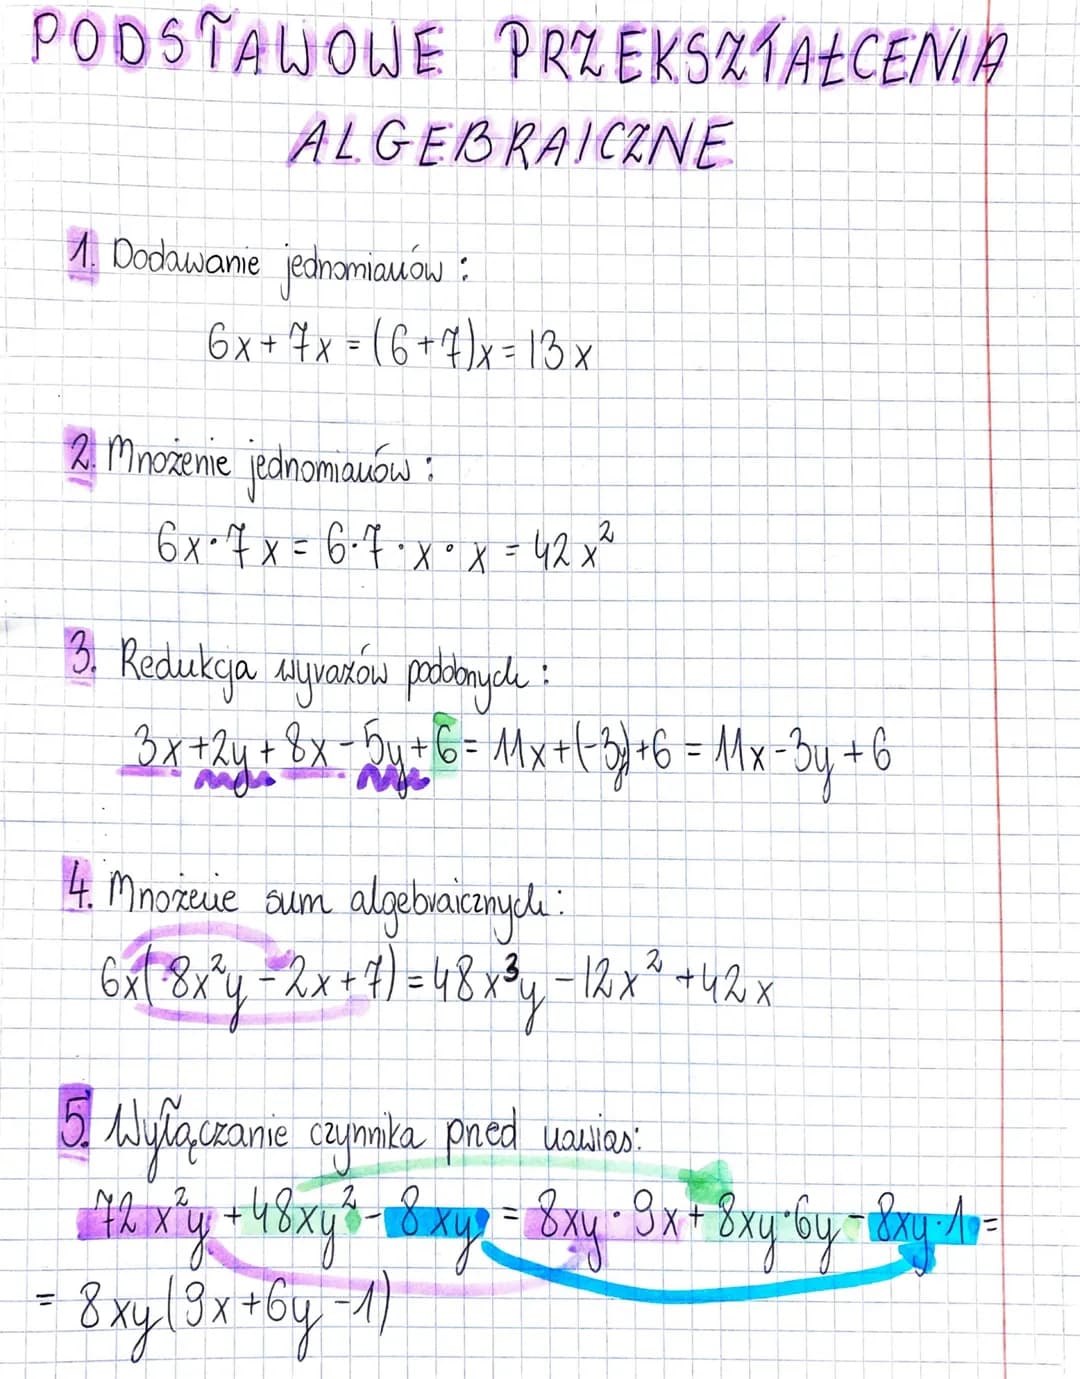 PODSTAWOWE PRZEKSZTAŁCENIA
ALGEBRAICZNE
1. Dodawanie jednomianów :
6x + 7x = (6+7)x = 13x
2. Mnożenie jednomianów :
6x · 7x = 6 · 7 · x · x = 42x²
3. Redukcja wyrazów podobnych :
3x + 2y + 8x - 5y + 6 = 11x + (-3y) + 6 = 11x - 3y + 6
4. Mnożenie sum algebraicznych :
6x(8x²y - 2x + 7) = 48x³y - 12x² + 42x
5. Wyłączanie czynnika przed nawias:
72x²y + 48xy² - 8xy = 8xy · 9x + 8xy · 6y - 8xy · 1 =
= 8xy(9x + 6y - 1)